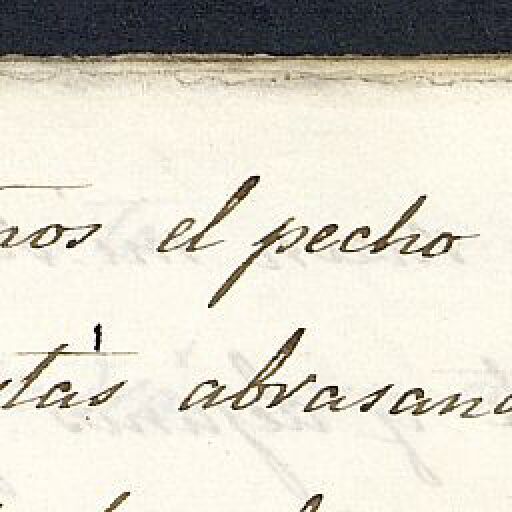 nos el pecho
stas abrasand